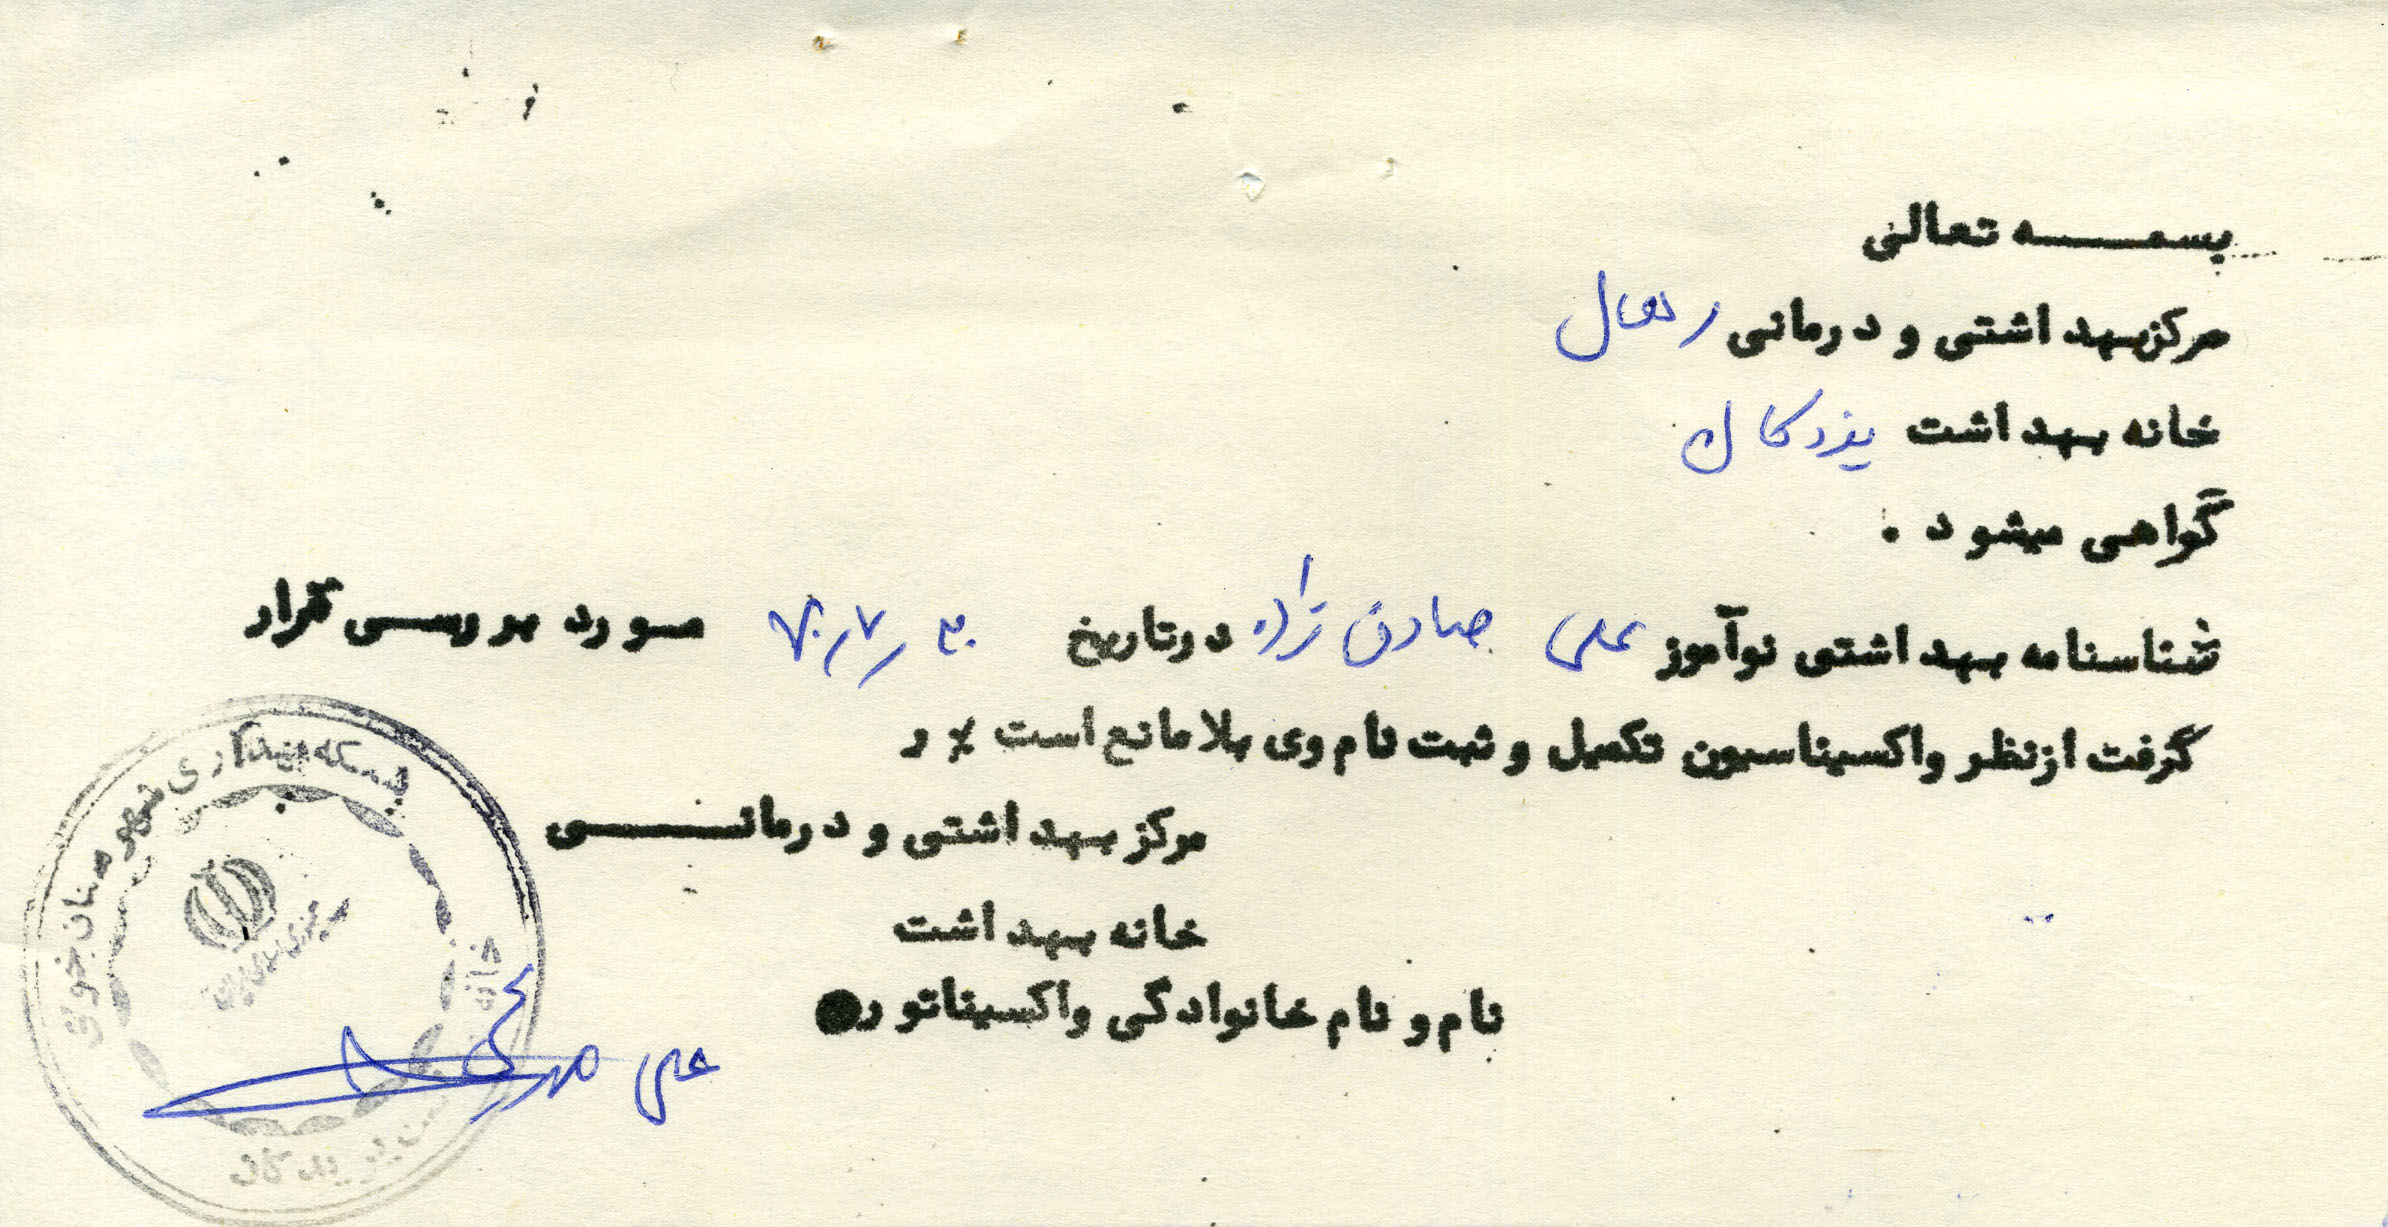 بسمه تعالی
مرکز بهداشتی و درمانی رهال
خانه بهداشت یزدکان
گواهی میشود .
شناسنامه بهداشتی نوآموز علی صادق نژاد در تاریخ ۷۰/۷/۳۰ مورد بررسی قرار
گرفت از نظر واکسیناسیون تکمیل و ثبت نام وی بلامانع است ٪ ر
مرکز بهداشتی و درمانی
خانه بهداشت
نام و نام خانوادگی واکسیناتور
علی
شهرستان خوی
خانه
جمهوری اسلامی ایران